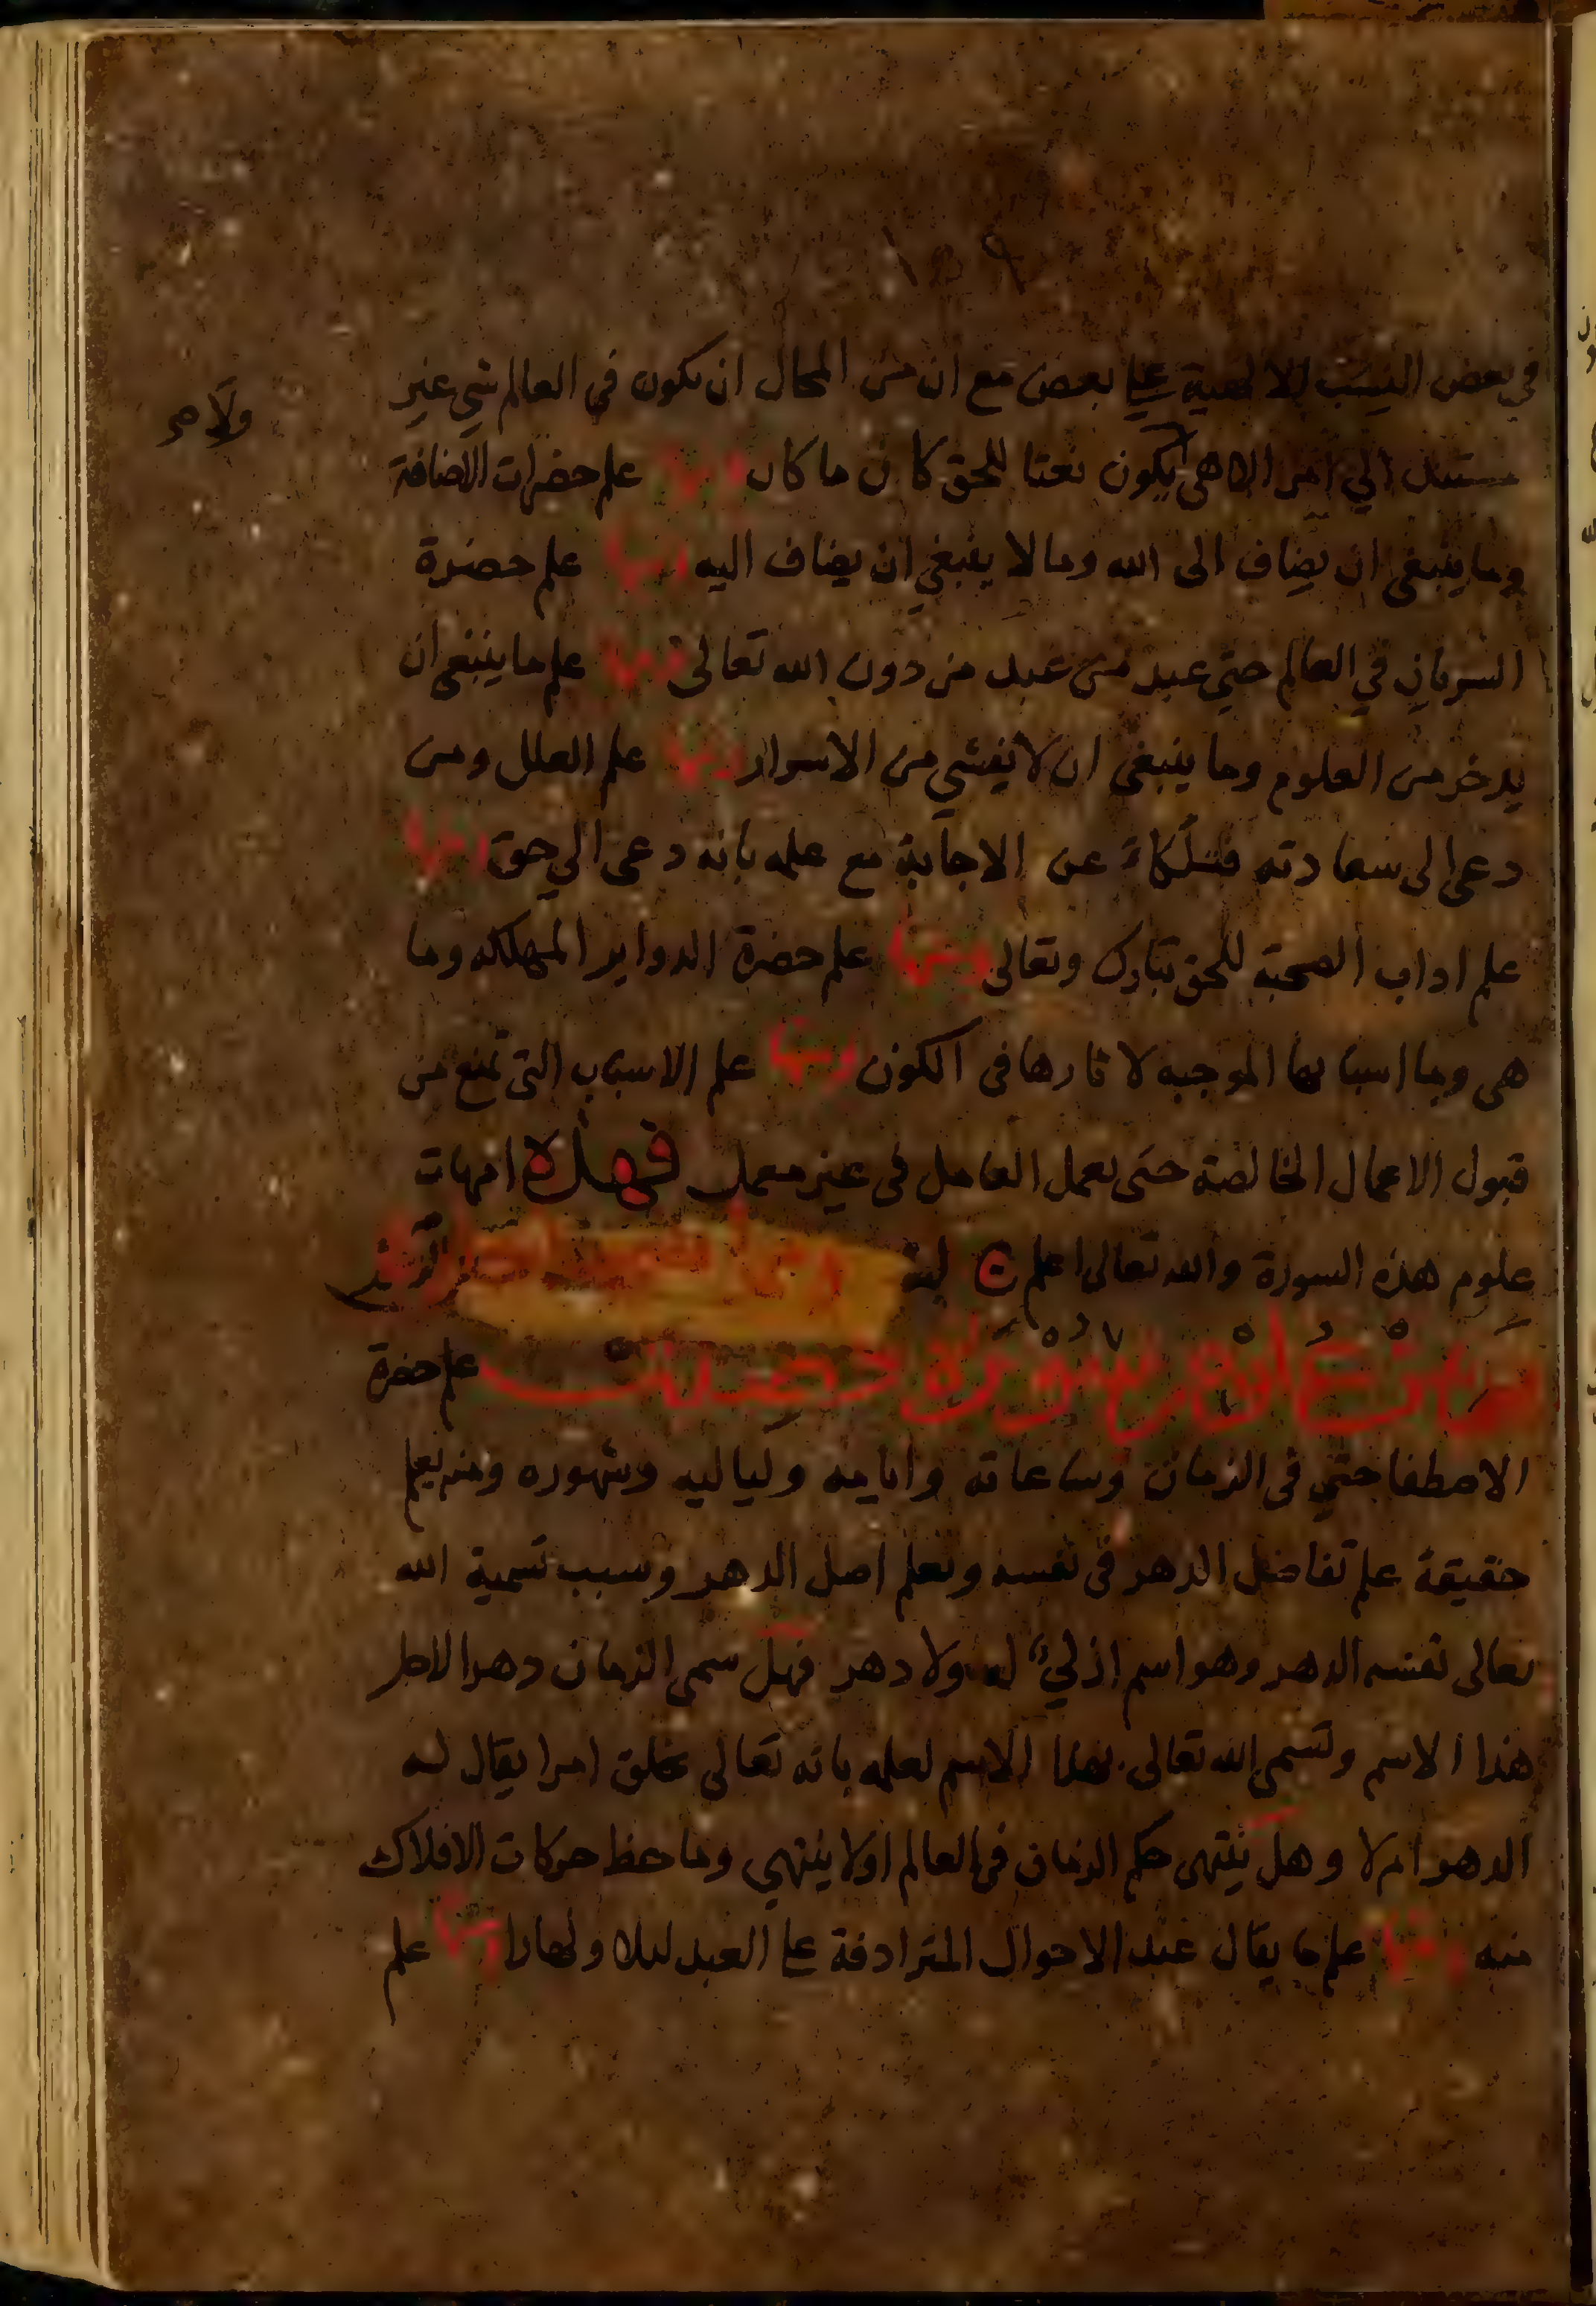 في بعض النسب الالهية علي بعض مع ان من المحال ان يكون في العالم شي غير
مستند الي امر الاهي يكون نعتا للحق كان ما كان ومنها علم حضرات الاضافة
ولا
وما ينبغي ان يضاف الى الله وما لا ينبغي ان يضاف اليه ومنها علم حضرة
السريان في العالم حتي عبد من عبد من دون الله تعالى ومنها علم ما ينبغي ان
يدخر من العلوم وما ينبغي ان لا يفشي من الاسرار ومنها علم العلل ومن
دعي الى سعادته فتلكاء عن الاجابة مع علمه بانه دعي الي حق ومنها
علم اداب الصحبة للحق تبارك وتعالى ومنها علم حضرة الدواير المهلكه وما
هي وما اسبابها الموجبه لاثارها في الكون ومنها علم الاسباب التي تمنع من
قبول الاعمال الخالصة حتى يعمل العامل في غير معمل فهذه امهات
علوم هذه السورة والله تعالى اعلم
سورة علم حضرة
الاصطفا حتي في الزمان وساعاته وايامه ولياليه وشهوره ومنه يعلم
حقيقة علم تفاضل الدهر في نفسه ويعلم اصل الدهر وسبب تسمية الله
تعالى نفسه الدهر وهو اسم ازلي له ولا دهر فهل سمي الزمان دهرا لاجل
هذا الاسم وتسمي الله تعالى بهذا الاسم لعلمه بانه تعالى يخلق امرا يقال له
الدهر ام لا وهل ينتهي حكم الزمان في العالم اولا ينتهي وما حظ حركات الافلاك
منه ومنها علم ما يقال عند الاحوال المترادفة علي العبد ليلا ونهارا ومنها علم